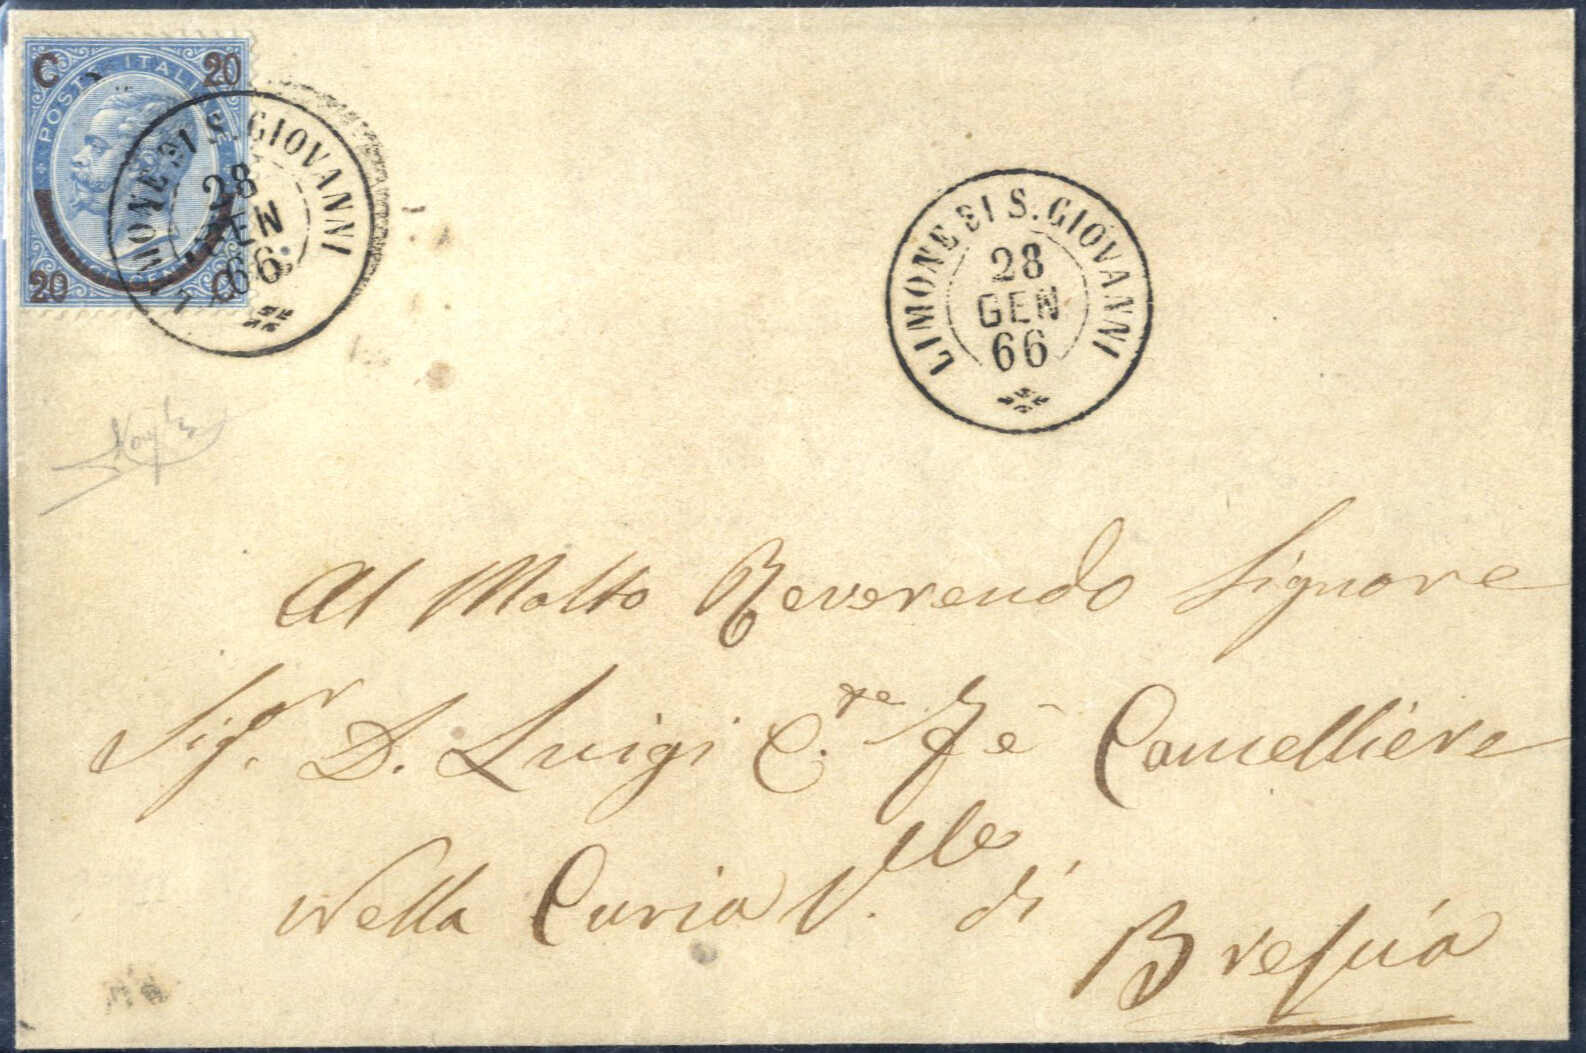 C 20
POSTE ITALIANE
20 C
LIMONE DI S. GIOVANNI
28
GEN
66
LIMONE DI S. GIOVANNI
28
GEN
66
Al Molto Reverendo Signore
Sigr. D. Luigi C.re Cancelliere
Nella Curia V.le di
Brescia